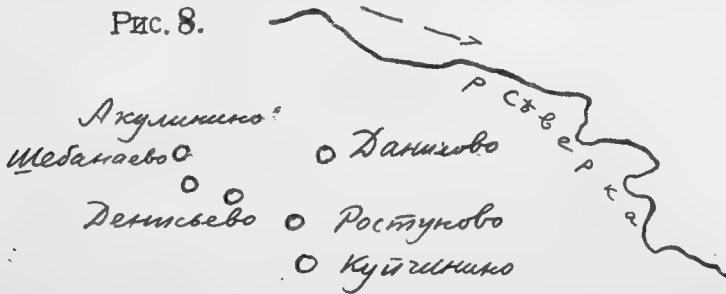 Рис. 8.
Р Сѣверка
Акулинино
Шебанаево
Данилово
Денисьево
Ростуново
Купчинино